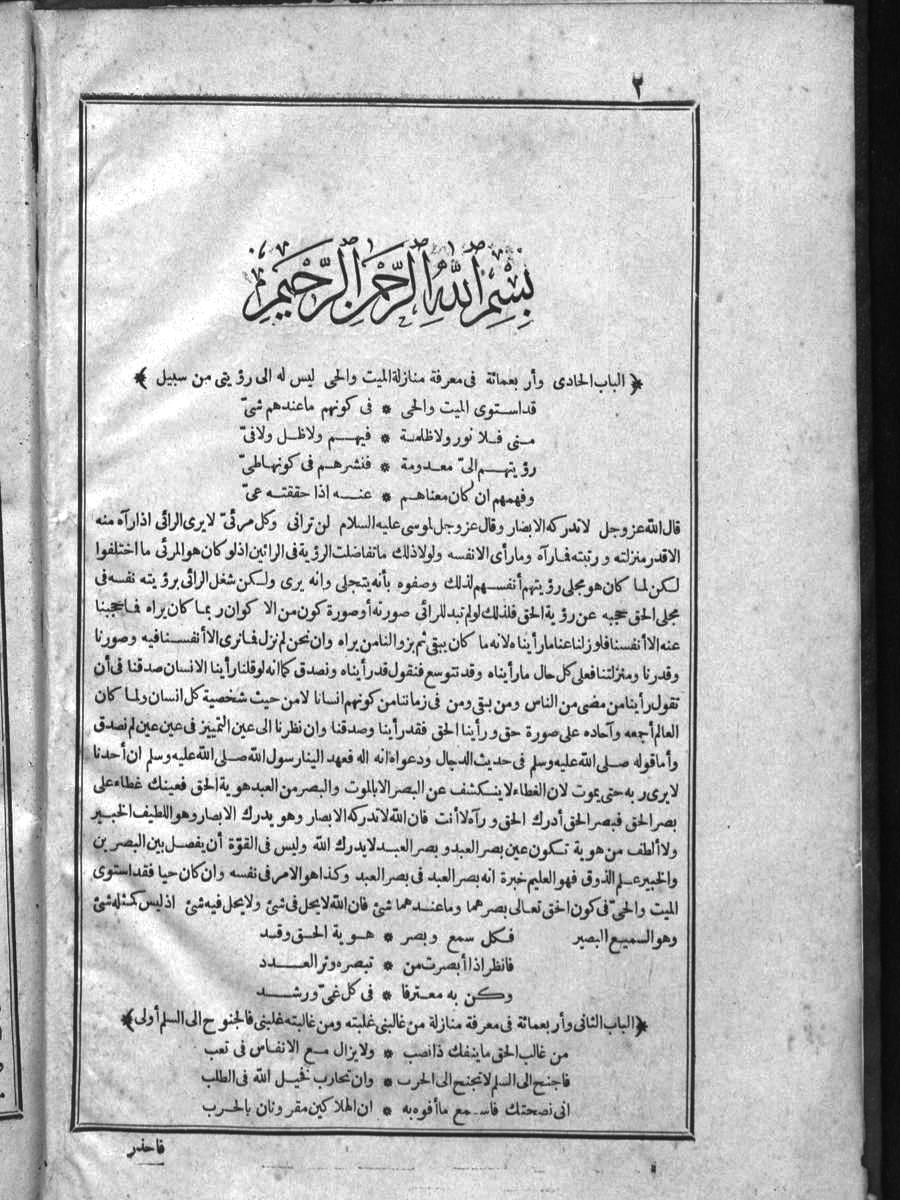 ٢
بِسْمِ اللّٰهِ الرَّحْمٰنِ الرَّحِيمِ
﴿ الباب الحادى وأربعمائة فى معرفة منازلة الميت والحى ليس له الى رؤيتى من سبيل ﴾
قد استوى الميت والحى * فى كونهم ما عندهم شىّ
منى فلا نور ولا ظلمة * فيهم ولا ظل ولا فىّ
رؤيتهم الىّ معدومة * فنشرهم فى كونها طىّ
وفهمهم ان كان معناهم * عنه اذا حققته عىّ
قال الله عز وجل لا تدركه الابصار وقال عز وجل لموسى عليه السلام لن ترانى وكل مرئىّ لا يرى الرائى اذا رآه منه
الا قدر منزلته ورتبته فما رآه وما رأى الا نفسه ولولا ذلك ما تفاضلت الرؤية فى الرائين اذ لو كان هو المرئى ما اختلفوا
لكن لما كان هو مجلى رؤيتهم أنفسهم لذلك وصفوه بأنه يتجلى وانه يرى ولكن شغل الرائى برؤيته نفسه فى
مجلى الحق حجبه عن رؤية الحق فلذلك لو لم تبد للرائى صورته أو صورة كون من الاكوان ربما كان يراه فما حجبنا
عنه الا أنفسنا فلو زلنا عنا ما رأيناه لانه ما كان يبقى ثم بزوالنا من يراه وان نحن لم نزل فما نرى الا أنفسنا فيه وصورنا
وقدرنا ومنزلتنا فعلى كل حال ما رأيناه وقد نتوسع فنقول قد رأيناه ونصدق كما انه لو قلنا رأينا الانسان صدقنا فى أن
نقول رأينا من مضى من الناس ومن بقى ومن فى زماننا من كونهم انسانا لا من حيث شخصية كل انسان ولما كان
العالم أجمعه وآحاده على صورة حق ورأينا الحق فقد رأينا وصدقنا وان نظرنا الى عين التمييز فى عين عين لم نصدق
وأما قوله صلى الله عليه وسلم فى حديث الدجال ودعواه انه اله فعهد الينا رسول الله صلى الله عليه وسلم ان أحدنا
لا يرى ربه حتى يموت لان الغطاء لا ينكشف عن البصر الا بالموت والبصر من العبد هوية الحق فعينك غطاء على
بصر الحق فبصر الحق أدرك الحق ورآه لا أنت فان الله لا تدركه الابصار وهو يدرك الابصار وهو اللطيف الخبير
ولا ألطف من هوية تكون عين بصر العبد وبصر العبد لا يدرك الله وليس فى القوّة أن يفصل بين البصرين
والخبير علم الذوق فهو العليم خبرة انه بصر العبد فى بصر العبد وكذا هو الامر فى نفسه وان كان حيا فقد استوى
الميت والحىّ فى كون الحق تعالى بصرهما وما عندهما شئ فان الله لا يحل فى شئ ولا يحل فيه شئ اذ ليس كمثله شئ
وهو السميع البصير فكل سمع وبصر * هوية الحق وقد
فانظر اذا أبصرت من * تبصره وتر العدد
وكن به معترفا * فى كل غىّ ورشد
﴿ الباب الثانى وأربعمائة فى معرفة منازلة من غالبنى غلبته ومن غالبته غلبنى فالجنوح الى السلم أولى ﴾
من غالب الحق ما ينفك ذا نصب * ولا يزال مع الانفاس فى تعب
فاجنح الى السلم لا تجنح الى الحرب * وان تحارب فخيل الله فى الطلب
انى نصحتك فاسمع ما أفوه به * ان الهلاك من مقرونان بالحرب
فاحذر